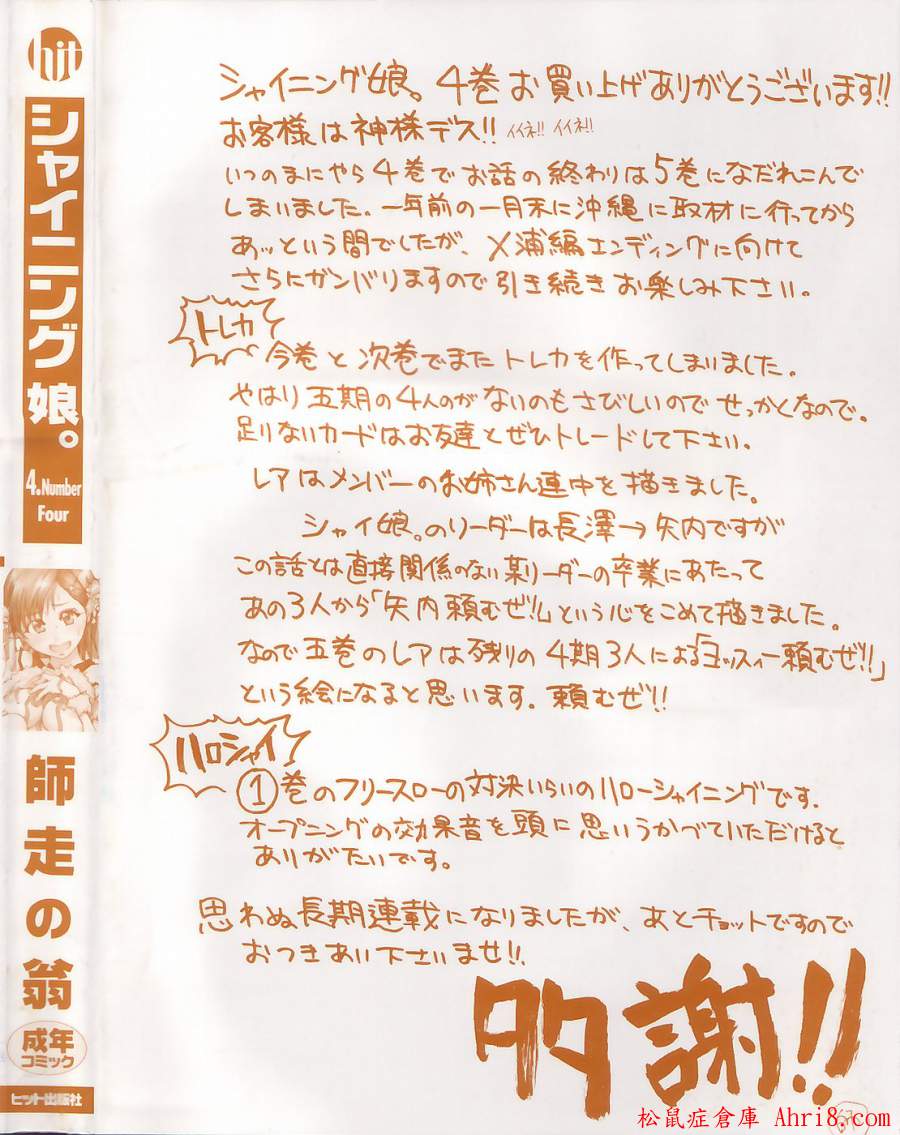 hit
シャイニング娘。
4.Number
Four
師走の翁
成年
コミック
ヒット出版社
シャイニング娘。4巻お買い上げありがとうございます!!
お客様は神様デス!! イイネ!! イイネ!!
いつのまにやら4巻でお話の終わりは5巻になだれこんで
しまいました。一年前の一月末に沖縄に取材に行ってから
あッという間でしたが、メ浦編エンディングに向けて
さらにガンバりますので引き続きお楽しみ下さい。
トレカ
今巻と次巻でまたトレカを作ってしまいました。
やはり五期の4人のがないのもさびしいのでせっかくなので。
足りないカードはお友達とぜひトレードして下さい。
レアはメンバーのお姉さん連中を描きました。
シャイ娘。のリーダーは長澤→矢内ですが
この話とは直接関係のない某リーダーの卒業にあたって
あの3人から「矢内頼むぜ!!」という心をこめて描きました。
なので五巻のレアは残りの4期3人による「ヨッスィー頼むぜ!!」
という絵になると思います。頼むぜ!!
ハロシャイ
①巻のフリースローの対決いらいのハローシャイニングです.
オープニングの効果音を頭に思いうかべていただけると
ありがたいです。
思わぬ長期連載になりましたが、あとチョットですので
おつきあい下さいませ!!
多謝!!
松鼠症倉庫 Ahri8.com